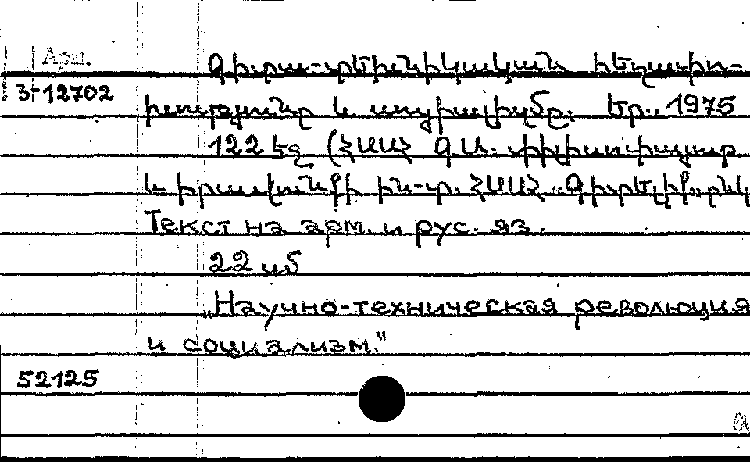 Арм. Գիտա-տեխնիկական հեղափո-
3-12702 խությունը և սոցիալիզմը. Եր., 1975
122 էջ (ՀՍՍՀ ԳԱ. Փիլիսոփայության
և իրավունքի ին-տ. ՀՍՍՀ „Գիտելիք" ընկ
Текст на арм. и рус. яз.
22 սմ
„Научно-техническая революция
и социализм."
52125